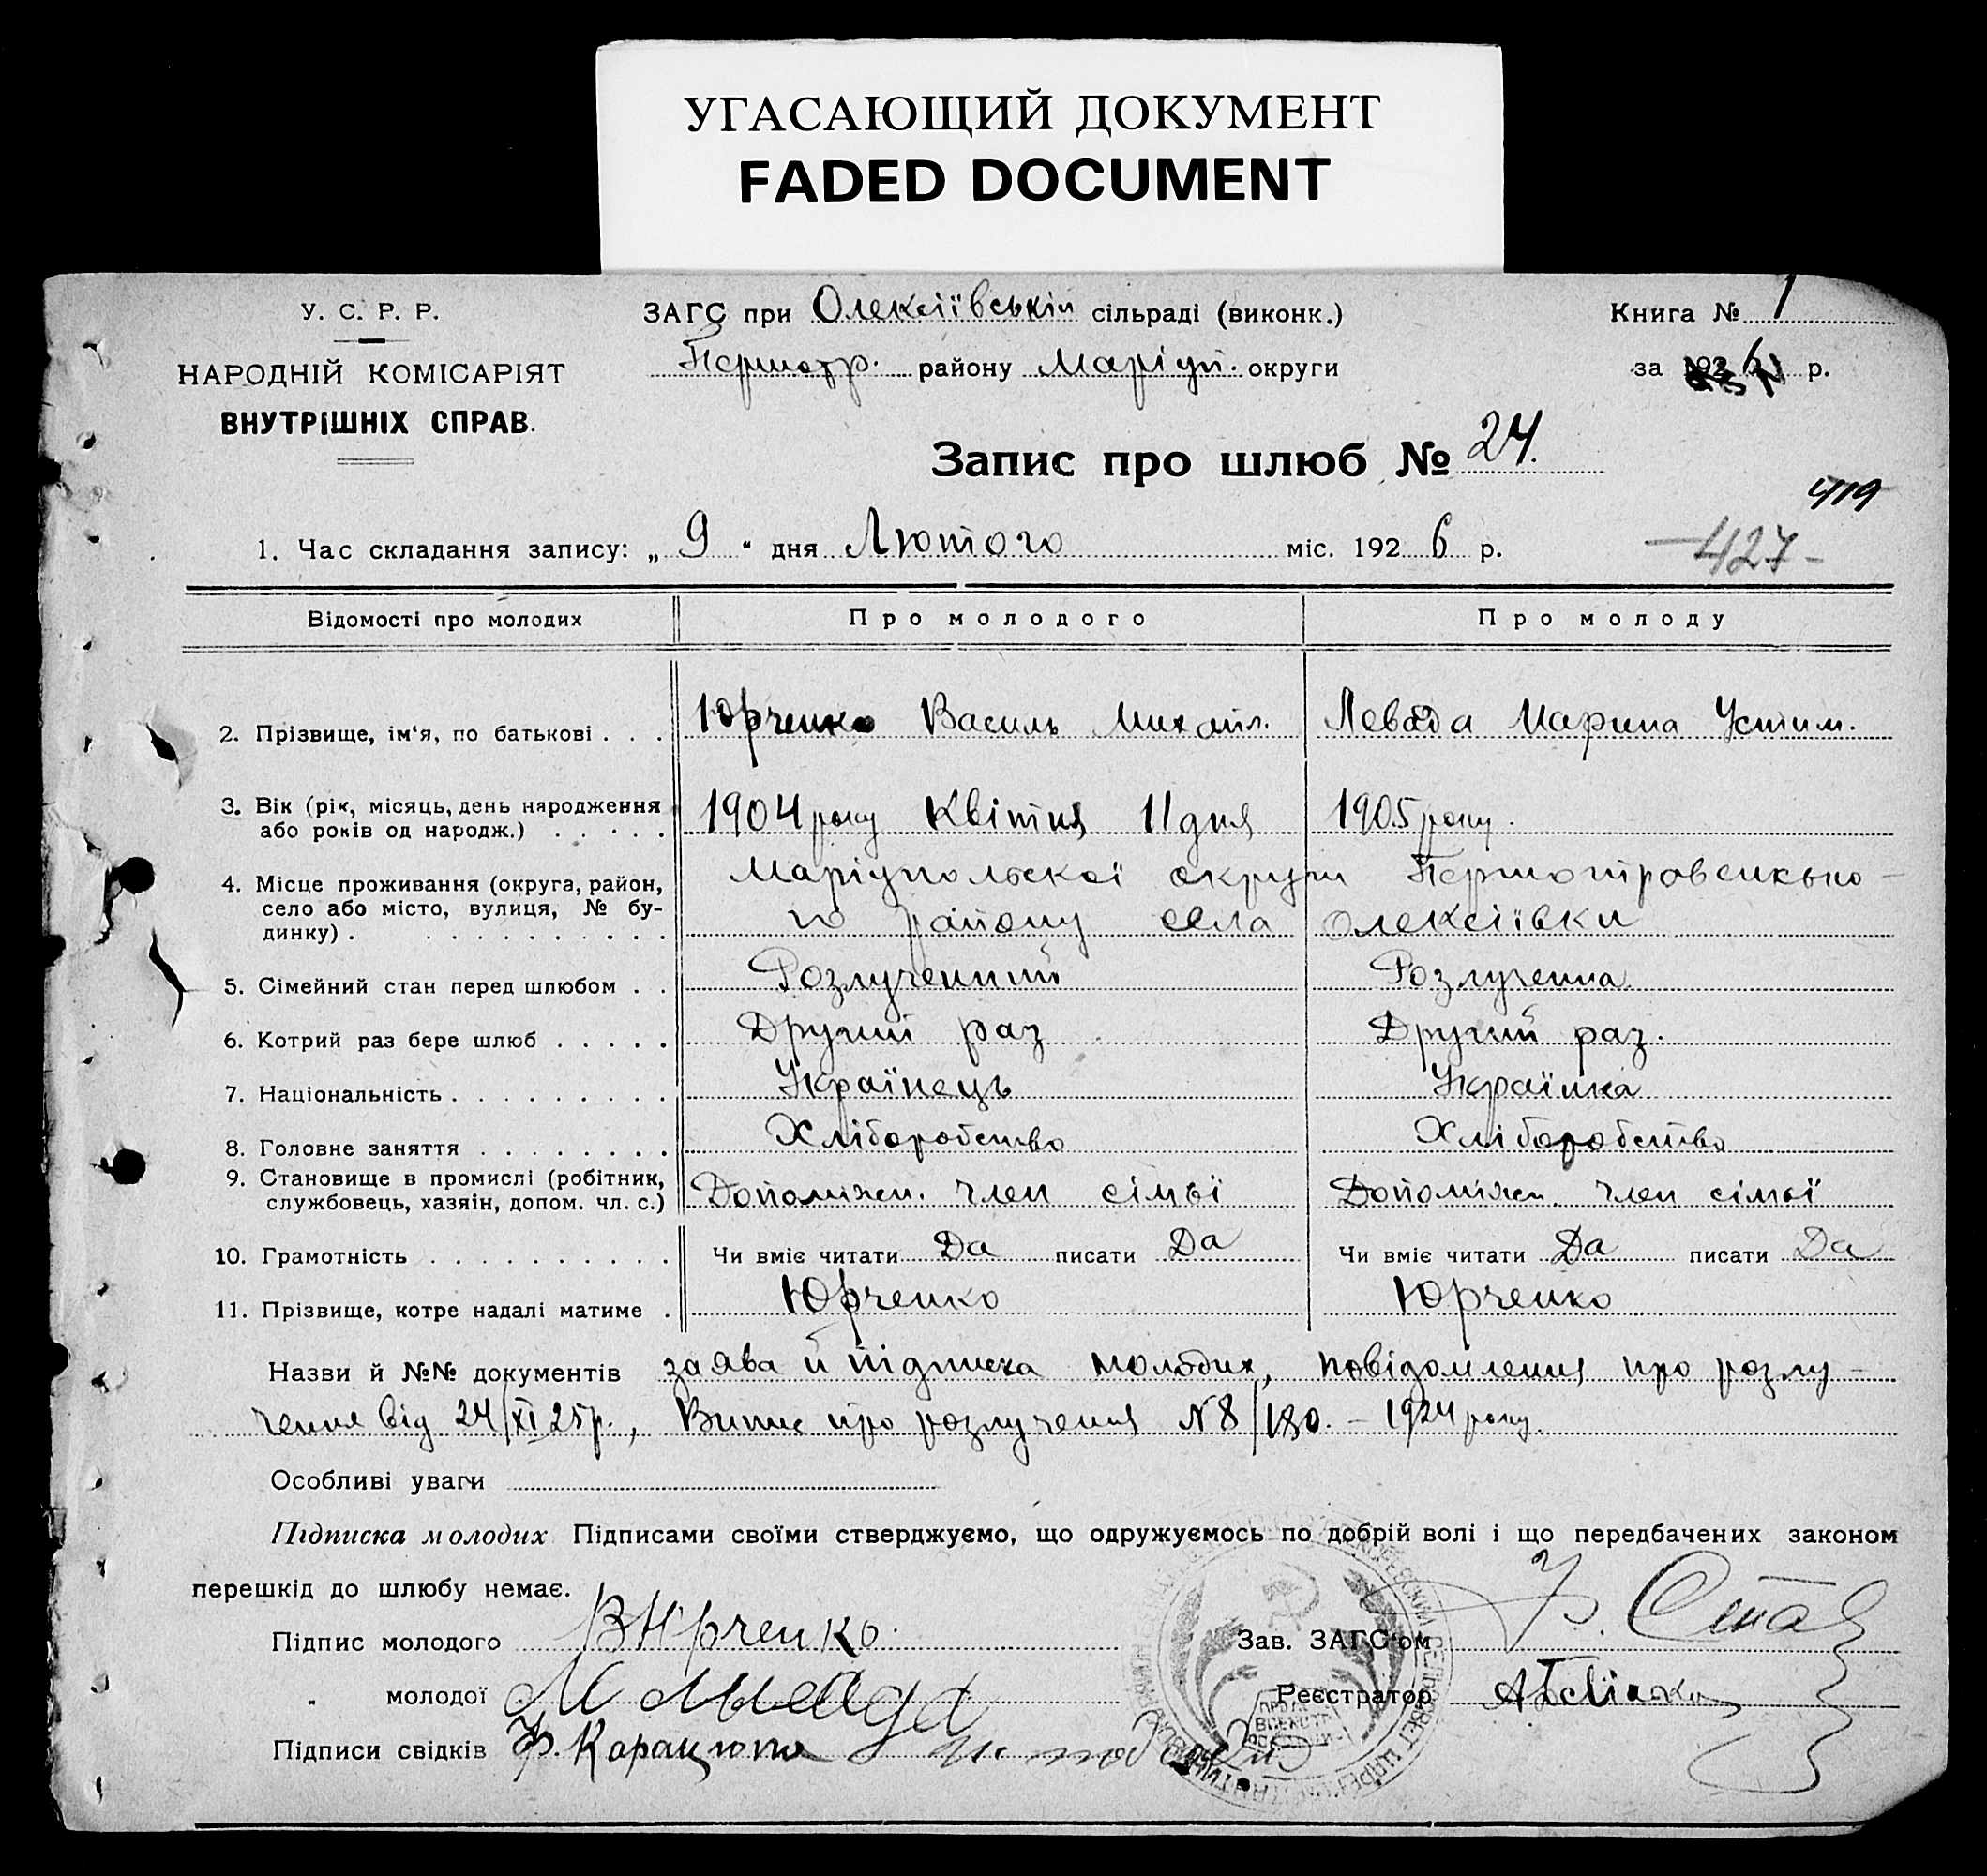 УГАСАЮЩИЙ ДОКУМЕНТ
FADED DOCUMENT
У. С. Р. Р.
НАРОДНІЙ КОМІСАРІЯТ
ВНУТРІШНІХ СПРАВ.
ЗАГС при Олексіївській сільраді (виконк.)
Першотр. району Маріуп. округи
Книга № 1
за 1926 р.
Запис про шлюб № 24.
419
1. Час складання запису: „ 9 " дня Лютого міс. 192 6 р.
-427-
Відомості про молодих Про молодого Про молоду
2. Прізвище, ім'я, по батькові . . . Юрченко Василь Михайл. Левада Марина Устим.
3. Вік (рік, місяць, день народження
або років од народж.) . . . . . 1904 року Квітня 11 дня 1905 року.
4. Місце проживання (округа, район, Маріупольскої округи Першотровенсько-
село або місто, вулиця, № бу- го району села Олексіївки
динку) . . . . . . . . . . .
5. Сімейний стан перед шлюбом . . Розлученний Розлученна
6. Котрий раз бере шлюб . . . . . Другий раз Другий раз.
7. Національність . . . . . . . . . Українець Українка
8. Головне заняття . . . . . . . . Хліборобство Хліборобство
9. Становище в промислі (робітник,
службовець, хазяїн, допом. чл. с.) Допоміжн. член сімьї Допоміжн. член сімьї
10. Грамотність . . . . . . . . . . Чи вміє читати Да писати Да Чи вміє читати Да писати Да
11. Прізвище, котре надалі матиме . Юрченко Юрченко
Назви й №№ документів заява й підписка молодих, повідомлення про розлу-
чення від 24/XI 25р., Випис про розлучения N8/180. - 1924 року.
Особливі уваги
Підписка молодих Підписами своїми стверджуємо, що одружуємось по добрій волі і що передбачених законом
перешкід до шлюбу немає.
Підпис молодого ВЮрченко. Зав. ЗАГС'ом
" молодої Реєстратор
Підписи свідків